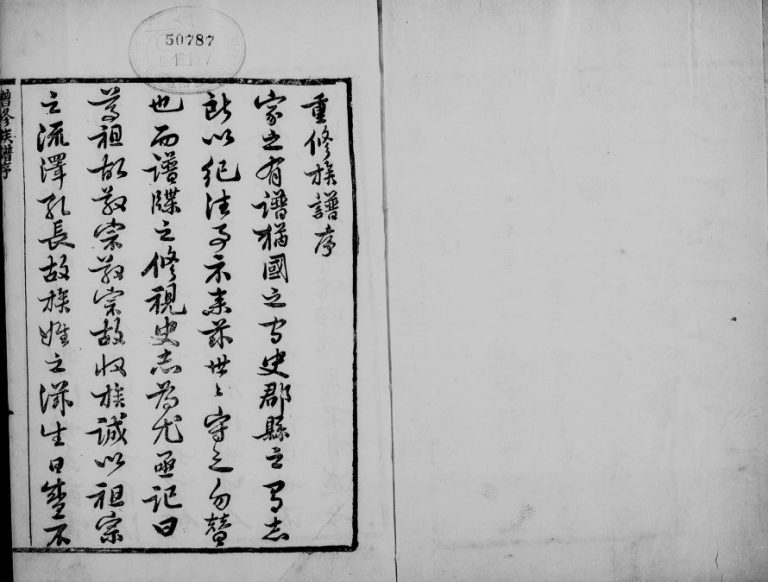 50787
重修族譜序
家之有譜猶國之有史郡縣之有志
所以紀往事示來茲世〻守之勿替
也而譜牒之修視史志為尤亟記曰
尊祖故敬宗敬宗故收族誠以祖宗
之流澤孔長故族姓之滋生日蕃不
譜序